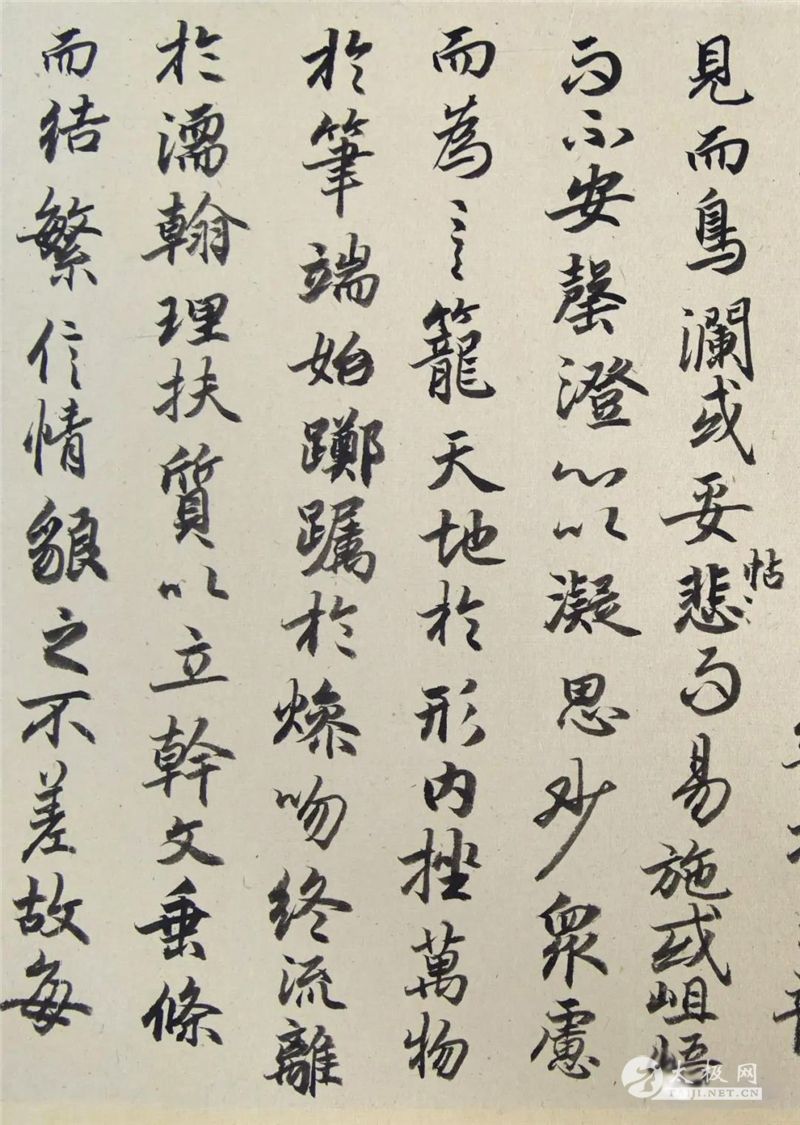 見而鳥瀾或妥悲而易施或岨峿
帖
而不安罄澄心以凝思眇衆慮
而為言籠天地於形内挫萬物
於筆端始躑躅於燥吻終流離
於濡翰理扶質以立幹文垂條
而結繁信情貌之不差故每
太极网
TAIJI.NET.CN